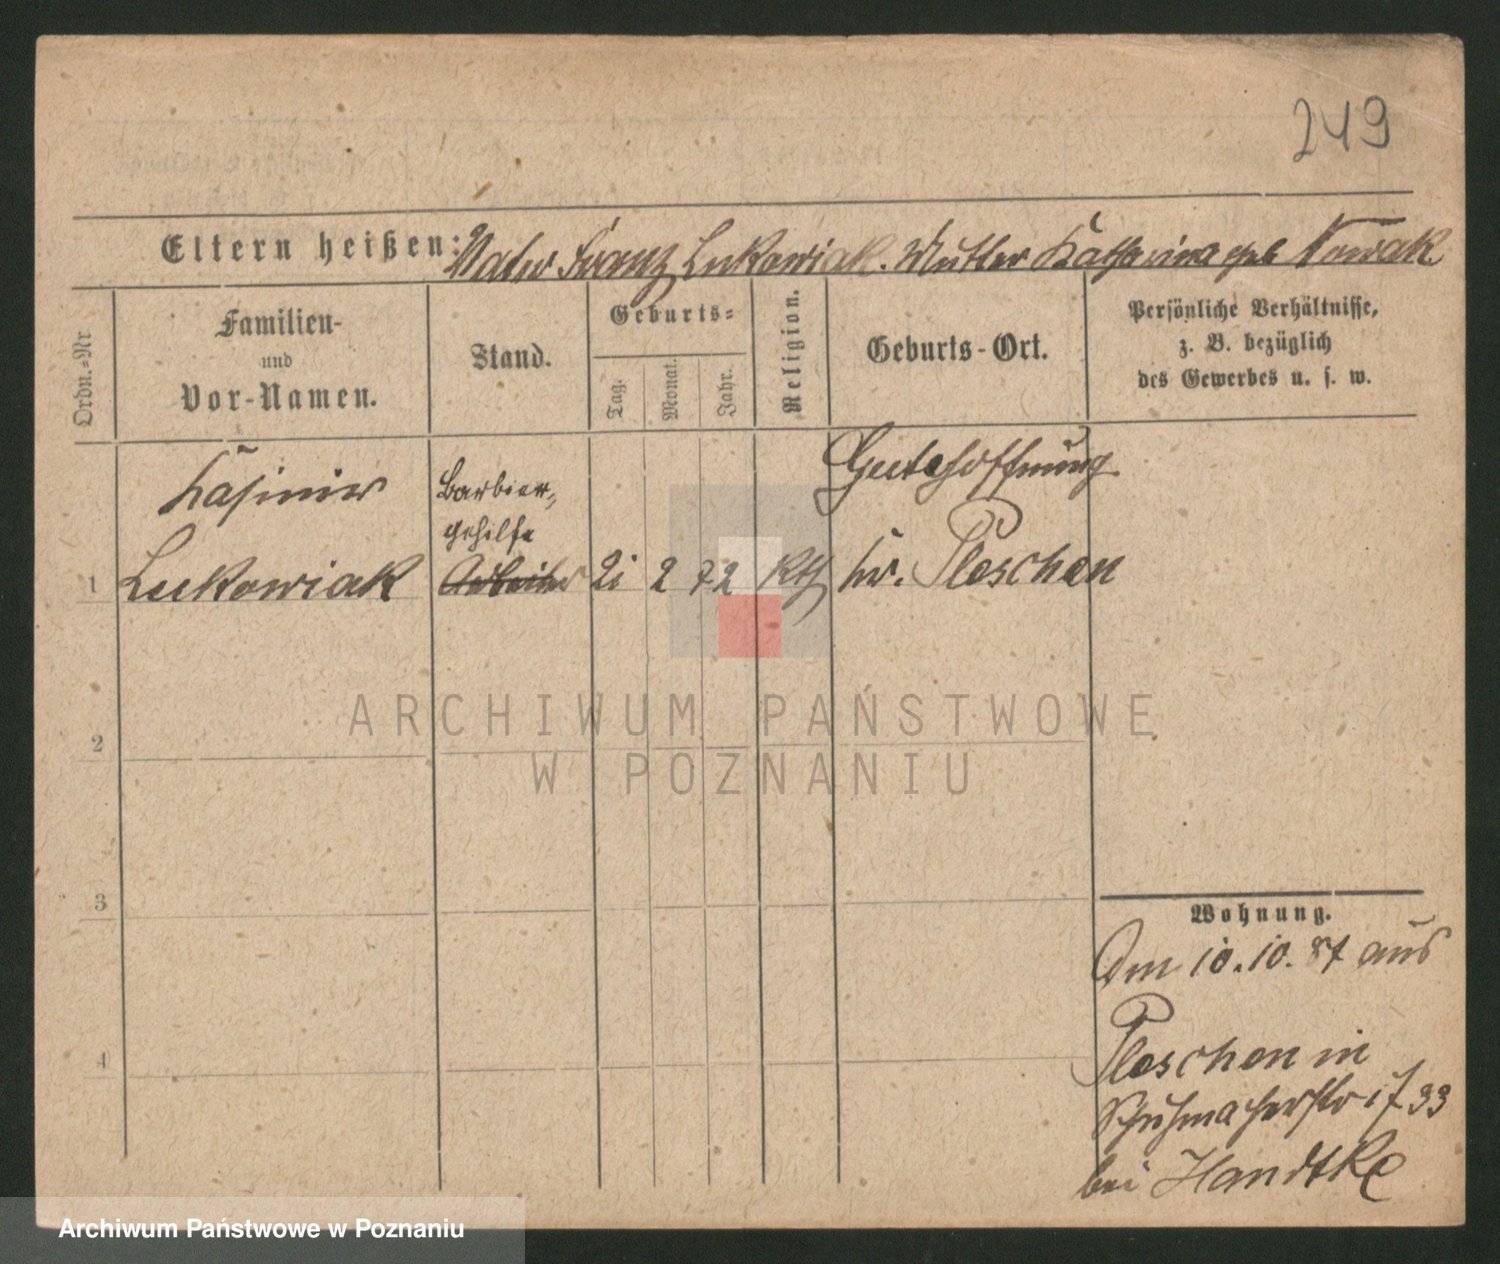 249
Eltern heißen: Vater Franz Lukowiak. Mutter Katharina geb Nowak.
Ordn.-Nr
Familien-
und
Vor-Namen.
Stand.
Geburts=
Tag.
Monat.
Jahr.
Religion.
Geburts-Ort.
Persönliche Verhältnisse,
z. B. bezüglich
des Gewerbes u. s. w.
Kasimir
Barbier-
gehilfe
Gutehoffnung
1 Lukowiak Arbeiter 21 2 72 Kth Kr. Pleschen
ARCHIWUM PAŃSTWOWE
W POZNANIU
2
3
4
Wohnung.
Am 10.10. 87 aus
Pleschen in
Schuhmacherstr 17 33
bei Handtke
Archiwum Państwowe w Poznaniu